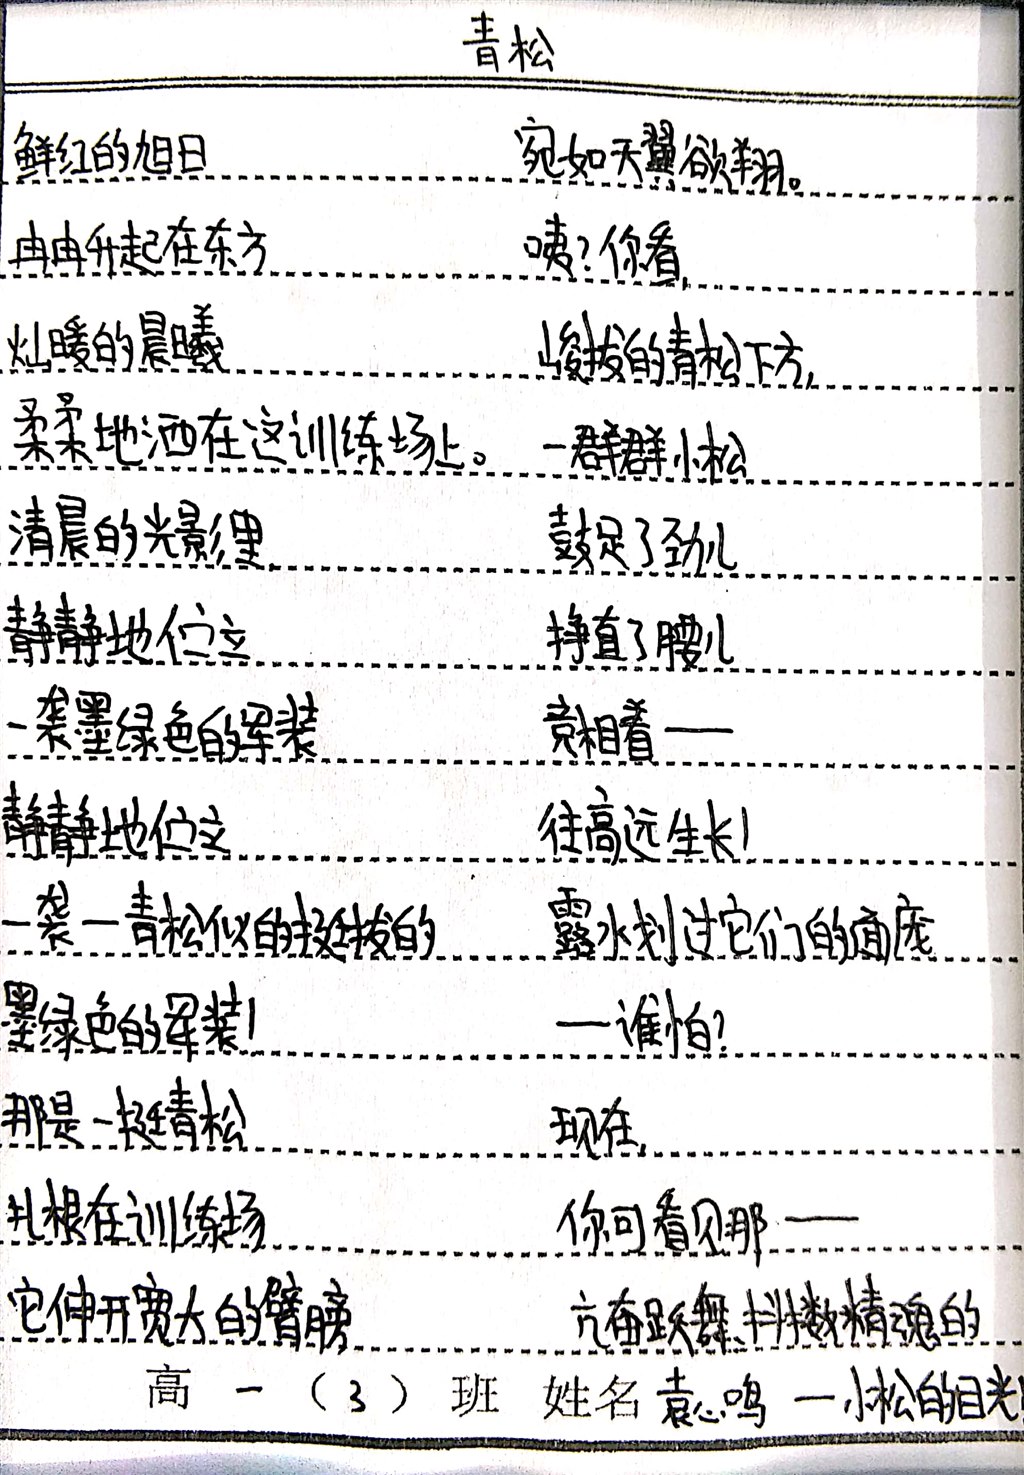 青松
鲜红的旭日
冉冉升起在东方
灿暖的晨曦
柔柔地洒在这训练场上。
清晨的光影里,
静静地伫立
一袭墨绿色的军装
静静地伫立
一袭一青松似的挺拔的
墨绿色的军装!
那是一挺青松
扎根在训练场
它伸开宽大的臂膀
宛如天翼欲翔。
咦?你看,
峻拔的青松下方,
一群群小松
鼓足了劲儿
挣直了腰儿
竞相着——
往高远生长!
露水划过它们的面庞
——谁怕?
现在,
你可看见那——
亢奋跃舞、抖擞精魂的
一小松的目光!
高一(3)班 姓名 袁心鸣